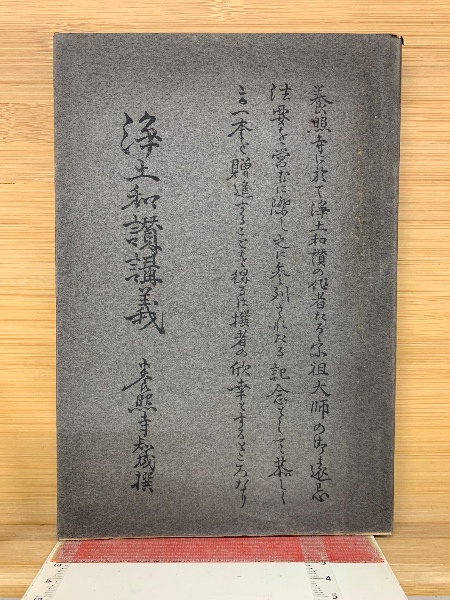 養照寺に於て浄土和讃の作者たる宗祖大師の御遠忌
法要を営むに際し之に参列されたる記念として恭しく
この一本を贈進することを得るは撰者の欣幸とするところなり
浄土和讃講義
養照寺知城撰